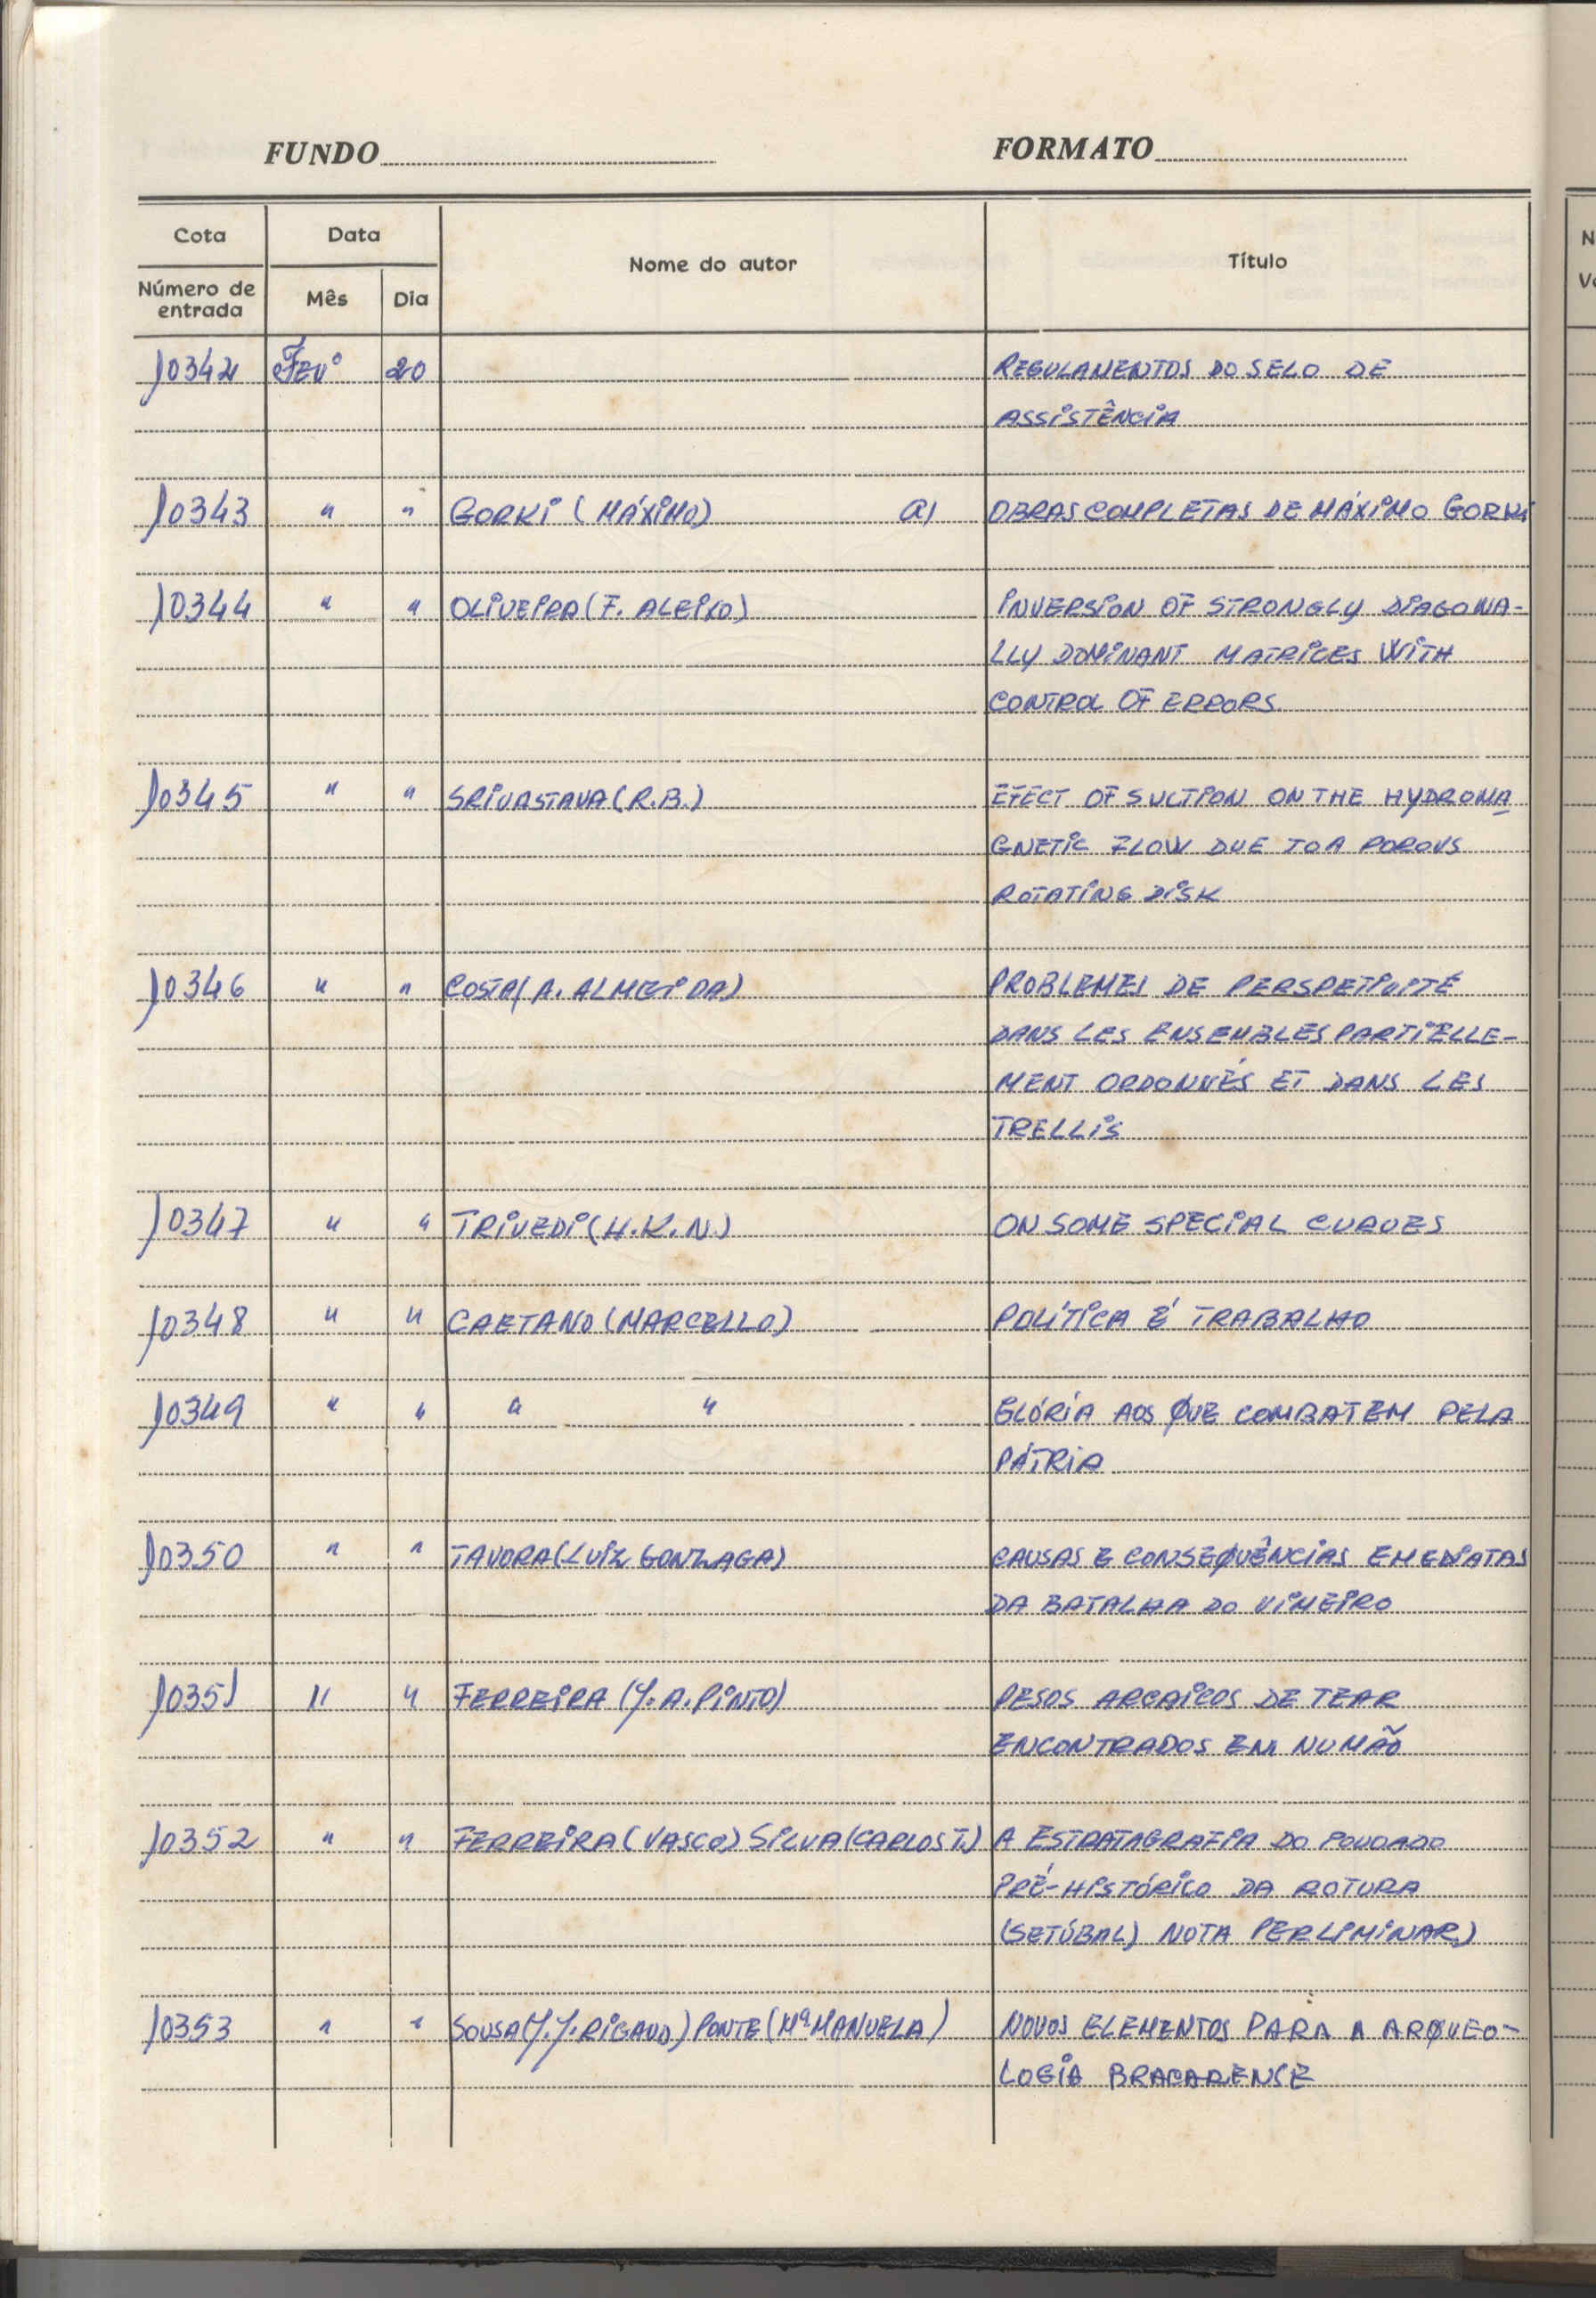 FUNDO FORMATO
Cota Data Nome do autor Título
Número de entrada Mês Dia
10342 Fevº 20 REGULAMENTOS DO SELO DE
ASSISTÊNCIA
10343 " " GORKI (MÁXIMO) a) OBRAS COMPLETAS DE MÁXIMO GORKI
10344 " " OLIVEIRA (F. ALEIXO) INVERSION OF STRONGLY DIAGONA-
LLY DOMINANT MATRICES WITH
CONTROL OF ERRORS
10345 " " SRIVASTAVA (R.B.) EFECT OF SUCTION ON THE HYDROMA
GNETIC FLOW DUE TO A POROUS
ROTATING DISK
10346 " " COSTA (A. ALMEIDA) PROBLEMES DE PERSPETIVITÉ
DANS LES ENSEMBLES PARTIELLE-
MENT ORDONNÉS ET DANS LES
TRELLIS
10347 " " TRIVEDI (H.K.N.) ON SOME SPECIAL CURVES
10348 " " CAETANO (MARCELLO) POLÍTICA É TRABALHO
10349 " " " " GLÓRIA AOS QUE COMBATEM PELA
PÁTRIA
10350 " " TAVORA (LUIZ GONZAGA) CAUSAS E CONSEQUÊNCIAS EMEDIATAS
DA BATALHA DO VIMEIRO
10351 " " FERREIRA (J. A. PINTO) PESOS ARCAICOS DE TEAR
ENCONTRADOS EM NUMÃO
10352 " " FERREIRA (VASCO) SILVA (CARLOS T.) A ESTRATAGRAFIA DO POVOADO
PRÉ-HISTÓRICO DA ROTURA
(SETÚBAL) NOTA PERLIMINAR)
10353 " " SOUSA (J. J. RIGAUD) PONTE (Mª MANUELA) NOVOS ELEMENTOS PARA A ARQUEO-
LOGIA BRACARENSE